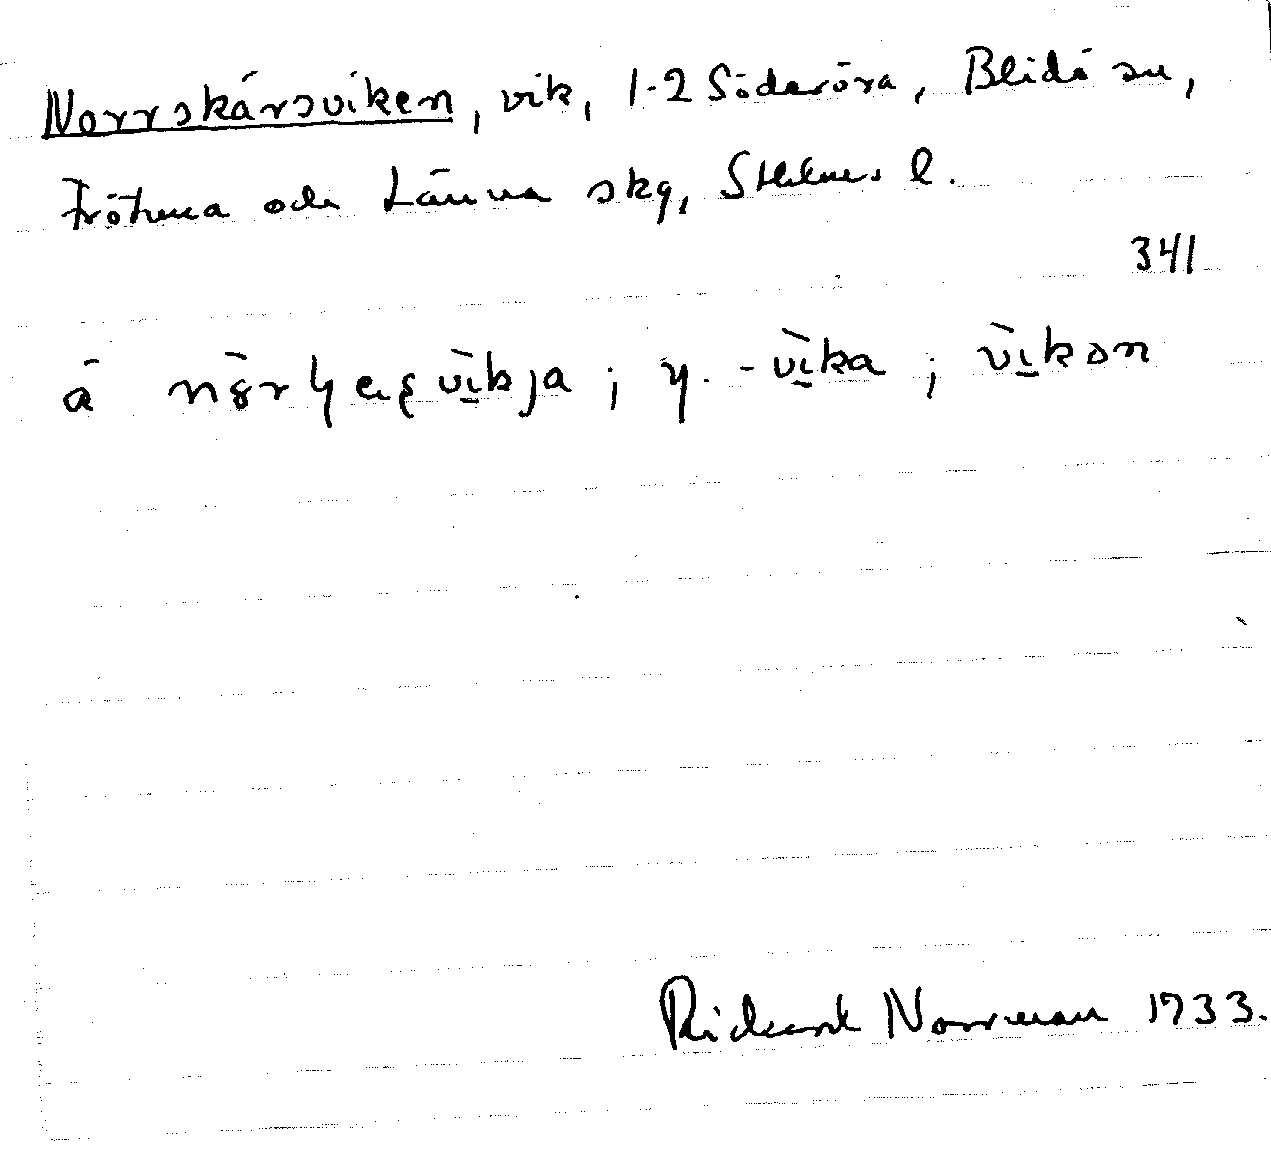 Norrskärsviken, vik, 1-2 Söderöra, Blidö sn,
Frötuna och Länna skg, Sthlms l.
341
y. -vika ; vikən
Rickard Norrman 1933.